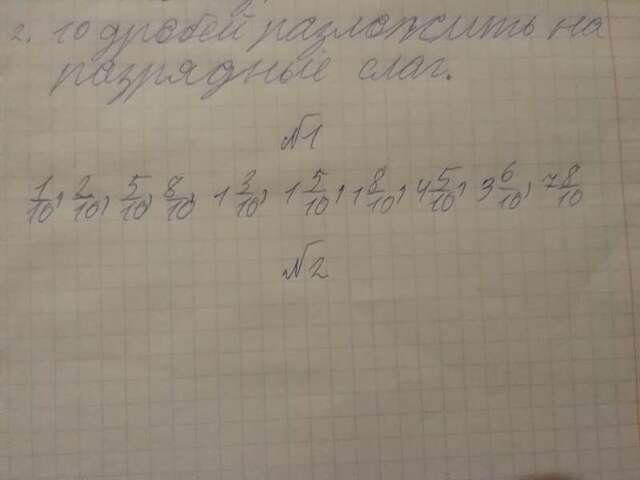 2. 10 дробей разложить на
разрядные слаг.
№1
1/10, 2/10, 5/10, 8/10, 1 3/10, 1 5/10, 1 8/10, 4 5/10, 3 6/10, 7 8/10
№2